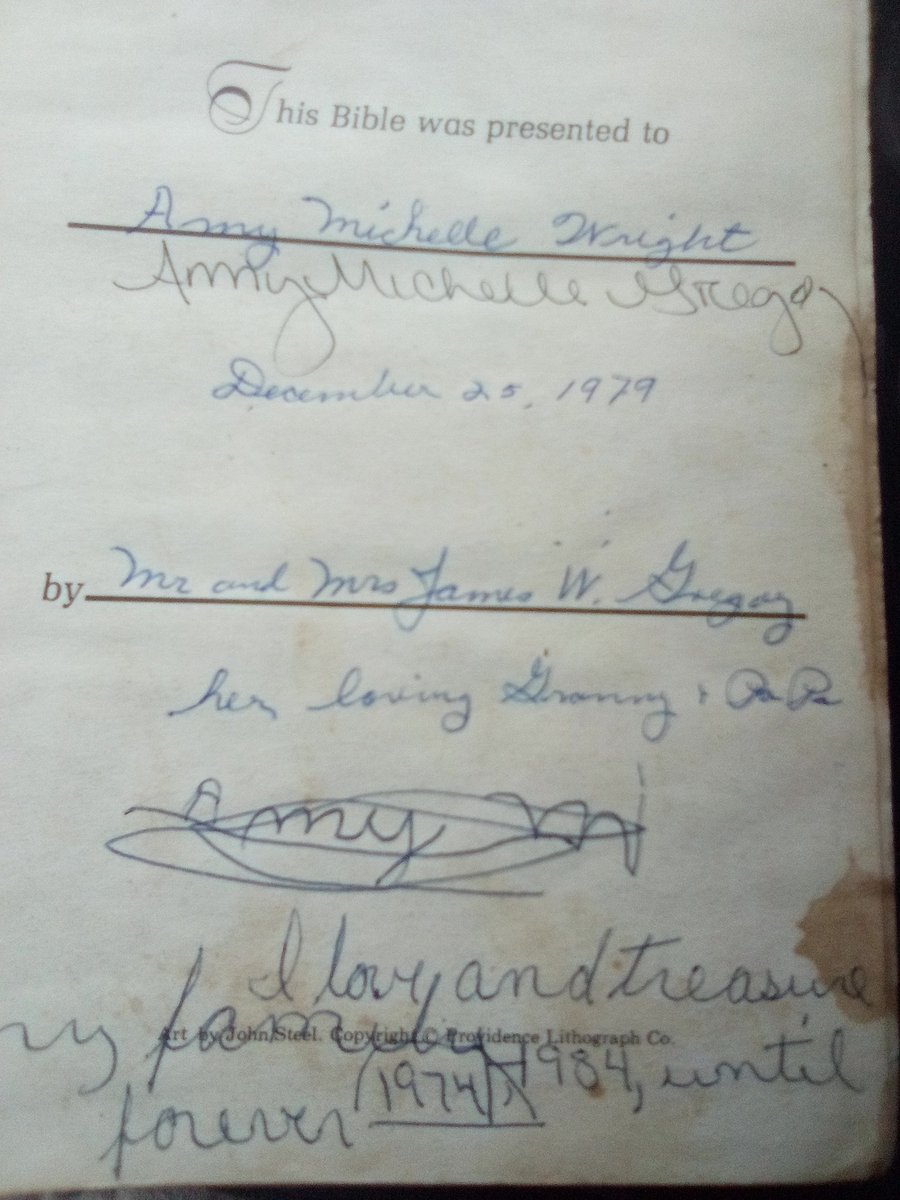 This Bible was presented to
Amy Michelle Wright
Amy Michelle Gregory
December 25, 1979
by Mr and Mrs James W. Gregory
her loving Granny & PaPa
Amy M
I love and treasure
my family 1984, until
Art by John Steel. Copyright © Providence Lithograph Co.
forever 1974